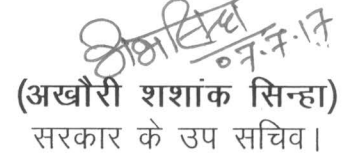 07.7.17
(अखौरी शशांक सिन्हा)
सरकार के उप सचिव।